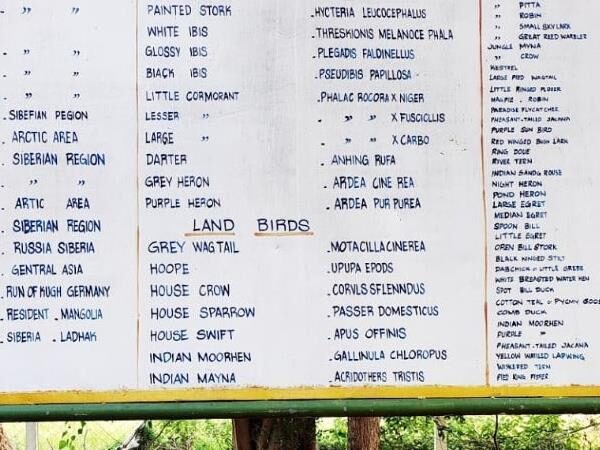 " "
" "
. " "
. " "
. SIBEFIAN PEGION
. ARCTIC AREA
. SIBERIAN REGION
. " "
. ARTIC AREA
. SIBERIAN REGION
. RUSSIA SIBERIA
. GENTRAL ASIA
. RUN OF KUGH GERMANY
. RESIDENT . MANGOLIA
. SIBERIA . LADHAK
PAINTED STORK
WHITE IBIS
GLOSSY IBIS
BIACK IBIS
LITTLE CORMORANT
LESSER "
LARGE "
DARTER
GREY HERON
PURPLE HERON
LAND BIRDS
GREY WAGTAIL
HOOPE
HOUSE CROW
HOUSE SPARROW
HOUSE SWIFT
INDIAN MOORHEN
INDIAN MAYNA
.HYCTERIA LEUCOCEPHALUS
.THRESKIONIS MELANOCE PHALA
.PLEGADIS FALDINELLUS
.PSEUDIBIS PAPILLOSA
.PHALAC ROCORA X NIGER
. " " X FUSCILLIS
. " " X CARBO
. ANHING RUFA
. ARDEA CINE REA
. ARDEA PUR PUREA
.MOTACILLACINEREA
.UPUPA EPODS
.CORVLS SFLENNDUS
.PASSER DOMESTICUS
.APUS OFFINIS
.GALLINULA CHLOROPUS
.ACRIDOTHERS TRISTIS
" PITTA
" ROBIN
" SMALL SKY LARK
" GREAT REED WARBLER
JUNGLE MYNA
" CROW
KESTREL
LARGE PIED WAGTAIL
LITTLE RINGED PLOVER
MAGPIE . ROBIN
PARADISE FLYCATCHER
PHEASANT-TAILED JACANA
PURPLE SUN BIRD
RED WINGED BUSH LARK
RING DOVE
RIVER TERN
INDIAN SANDG ROUSE
NIGHT HERON
POND HERON
LARGE EGRET
MEDIAN EGRET
SPOON BILL
LITTLE EGRET
OPEN BILL STORK
BLACK WINGED STILT
DABCHICK or LITTLE GREBE
WHITE BREASTED WATER HEN
SPOT BILL DUCK
COTTON TEAL or PYGMY GOOS
COMB DUCK
INDIAN MOORHEN
PURPLE "
PHEASANT-TAILED JACANA
YELLOW WATTLED LAPWING
WHISKERED TERN
PIED KING FISHER